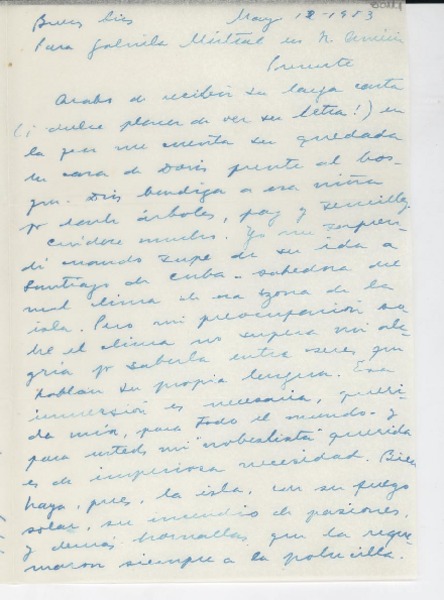 Buenos Aires Mayo 12-1953
Para Gabriela Mistral en N. América
Presente
Acabo de recibir su larga carta
(¡dulce placer de ver su letra!) en
la que me cuenta su quedada
en casa de Doris frente al bos-
que. Dios bendiga a esa niña
por darle árboles, paz y sencillez.
Cuídese mucho. Yo me sorpren-
dí cuando supe de su ida a
Santiago de Cuba - sabedora del
mal clima de esa zona de la
isla. Pero mi preocupación so-
bre el clima no supera mi ale-
gría por saberla entre seres que
hablan su propia lengua. Esa
inmersión es necesaria, queri-
da mía, para todo el mundo - y
para usted, mi "nobelista" querida
es de imperiosa necesidad. Bien
haya, pues, la isla, con su fuego
solar, su incendio de pasiones,
y demás hornallas que la reque-
maron siempre a la pobrecilla.